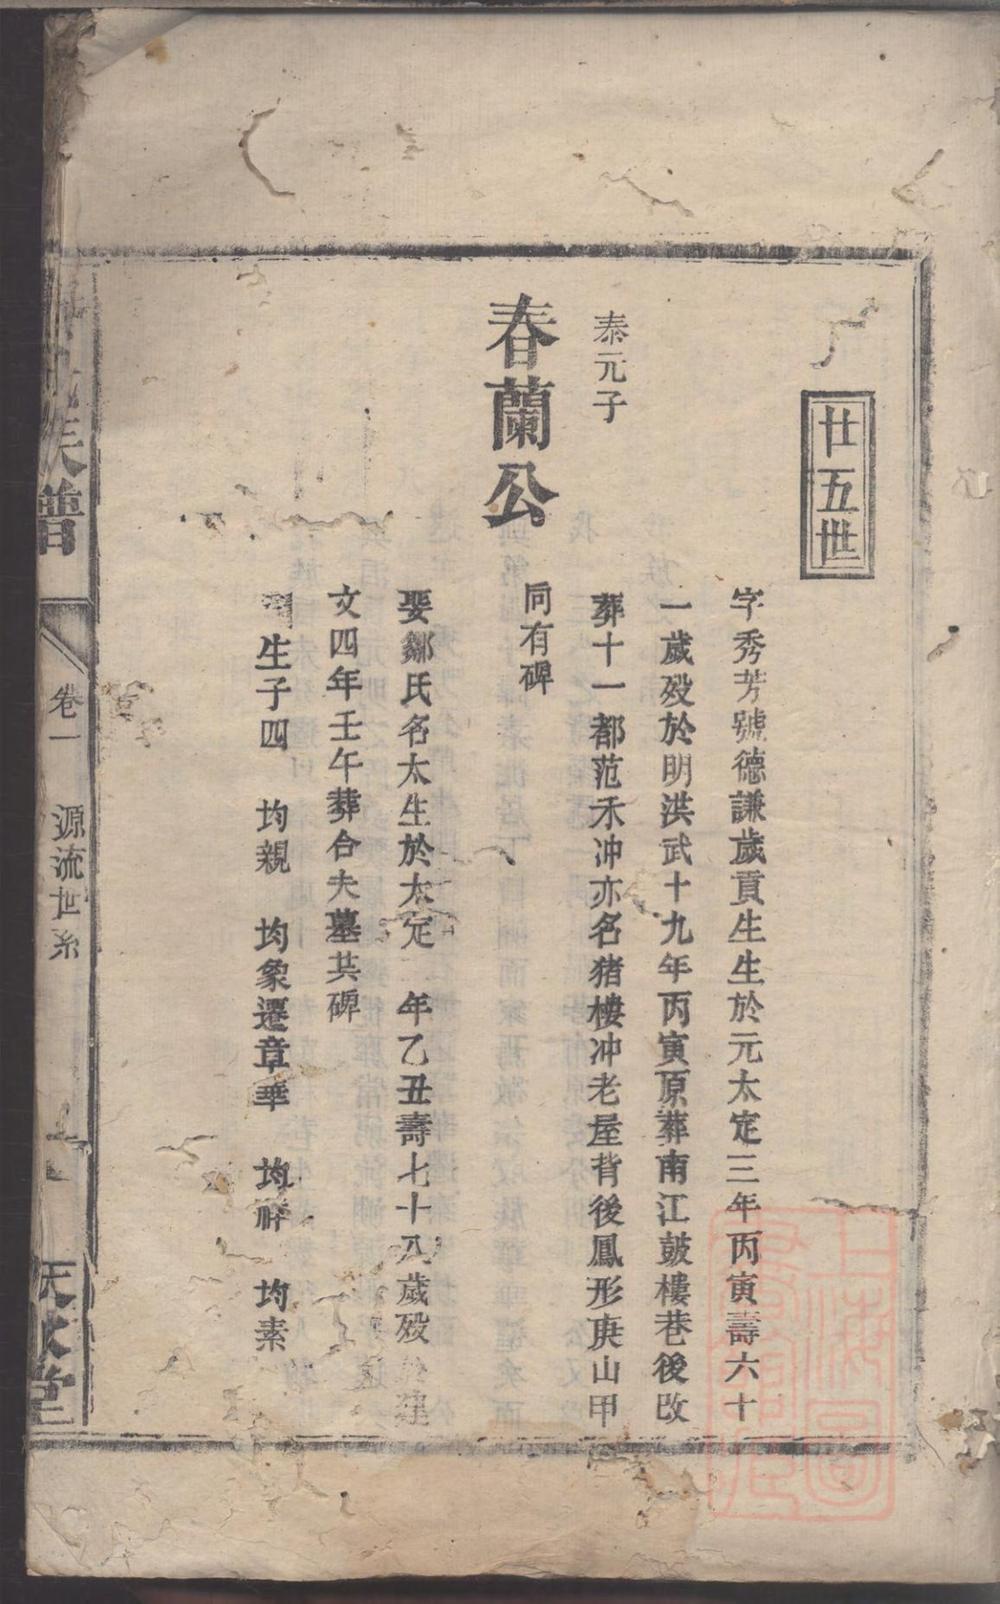 廿五世
泰元子
春蘭公
字秀芳號德謙歲貢生生於元太定三年丙寅壽六十
一歲殁於明洪武十九年丙寅原葬南江鼓樓巷後改
葬十一都范禾冲亦名猪樓冲老屋背後鳳形庚山甲
同有碑
娶鄒氏名太生於太定 年乙丑壽七十八歲殁於建
文四年壬午葬合夫墓其碑
生子四 均親 均象遷章華 均祥 均素
族譜
卷一 源流世系
堂
上海圖書館藏